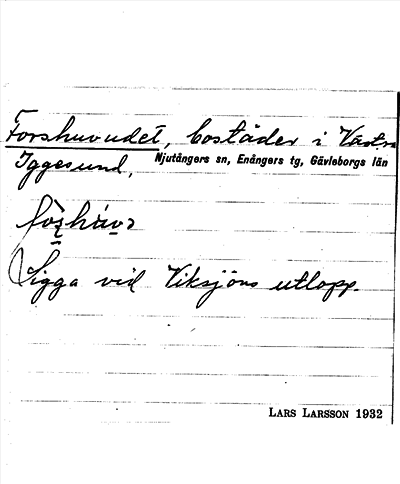 Forshuvudet, bostäder i Västra
Iggesund, Njutångers sn, Enångers tg, Gävleborgs län
Ligga vid Viksjöns utlopp.
LARS LARSSON 1932